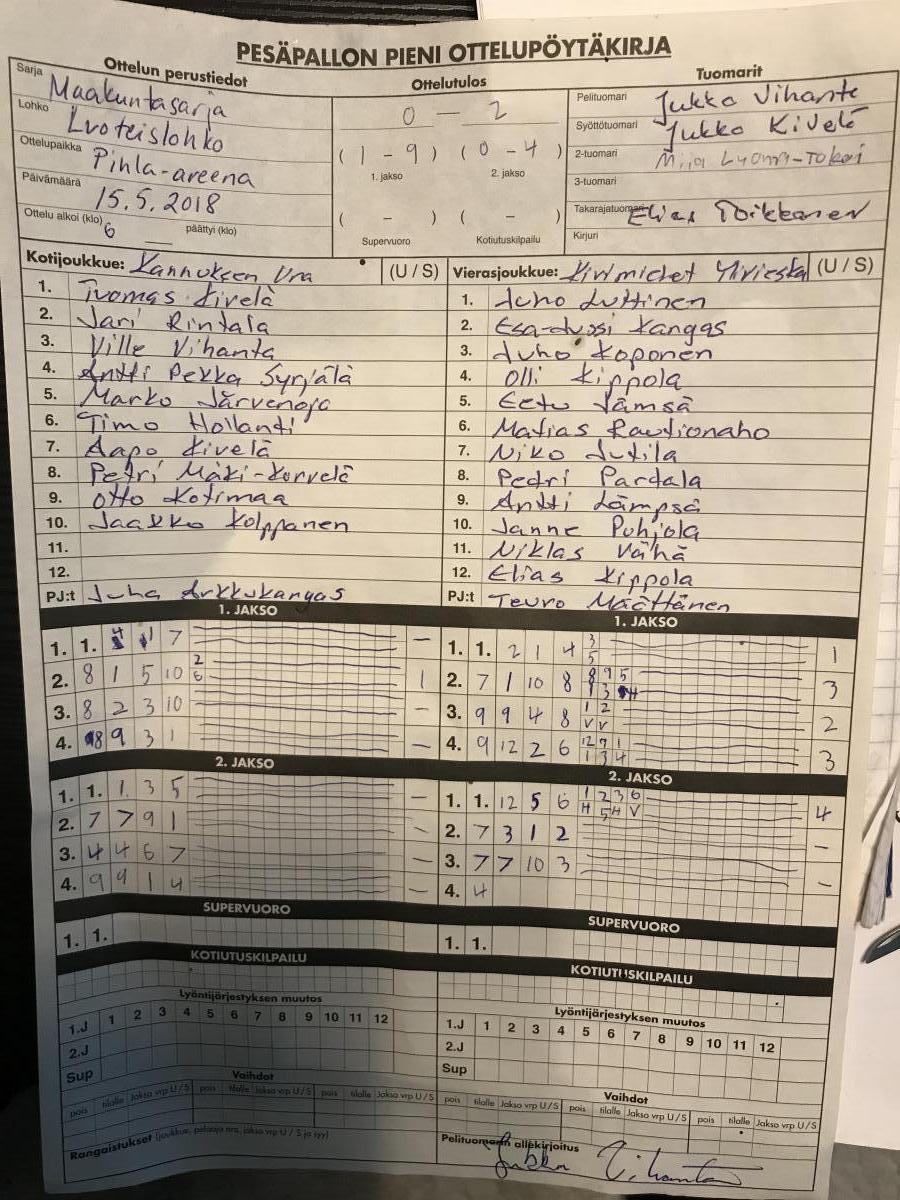 PESÄPALLON PIENI OTTELUPÖYTÄKIRJA
Ottelun perustiedot
Sarja Maakuntasarja
Lohko Luoteislohko
Ottelupaikka Pihla-areena
Päivämäärä 15.5.2018
Ottelu alkoi (klo) päättyi (klo)
Ottelutulos
0 – 2
(1 – 9) (0 – 4)
1. jakso 2. jakso
( – ) ( – )
Supervuoro Kotiutuskilpailu
Tuomarit
Pelituomari Jukka Vihanta
Syöttötuomari Jukka Kivelä
2-tuomari
3-tuomari
Takarajatuomari Elias Toikkanen
Kirjuri
Kotijoukkue: Kannuksen Ura (U / S)
1. Tuomas Kivelä
2. Jari Rintala
3. Ville Vihanta
4. Antti Pekka Syrjälä
5. Marko Järvenoja
6. Timo Hollanti
7. Aapo Kivelä
8. Petri Mäki-Korvelä
9. Otto Kotimaa
10. Jaakko Kolppanen
11.
12.
PJ:t Juha Arkkukangas
Vierasjoukkue: Kirimiehet Ylivieska (U / S)
1. Juho Luttinen
2. Esa-Jussi Kangas
3. Juho Koponen
4. Olli Kippola
5. Eetu Jämsä
6. Matias Rautionaho
7. Niko Jutila
8. Pedri Pardala
9. Antti Lämpsä
10. Janne Pohjola
11. Niklas Vähä
12. Elias Kippola
PJ:t Teuvo Määttänen
1. JAKSO
1. 1. 4 7 –
2. 8 1 5 10 2 6 1
3. 8 2 3 10 –
4. 8 9 3 1 –
2. JAKSO
1. 1. 1 3 5 –
2. 7 7 9 1 –
3. 4 4 6 7 –
4. 9 9 1 4 –
SUPERVUORO
1. 1.
KOTIUTUSKILPAILU
Lyöntijärjestyksen muutos
1.J 1 2 3 4 5 6 7 8 9 10 11 12
2.J
Sup
Vaihdot
pois tilalle Jakso vrp U / S pois tilalle Jakso vrp U / S pois tilalle Jakso vrp U / S
Rangaistukset (joukkue, pelaaja nro, jakso vrp U / S ja syy)
1. JAKSO
1. 1. 2 1 4 3 5 1
2. 7 1 10 8 8 9 5 1 3 H 3
3. 9 9 4 8 1 2 V V 2
4. 9 12 2 6 12 7 1 1 3 4 3
2. JAKSO
1. 1. 12 5 6 1 2 3 6 H 5 H V 4
2. 7 3 1 2 –
3. 7 7 10 3 –
4. 4
SUPERVUORO
1. 1.
KOTIUTUSKILPAILU
Lyöntijärjestyksen muutos
1.J 1 2 3 4 5 6 7 8 9 10 11 12
2.J
Sup
Vaihdot
pois tilalle Jakso vrp U / S pois tilalle Jakso vrp U / S pois tilalle Jakso vrp U / S
Pelituomarin allekirjoitus
Jukka Vihanta